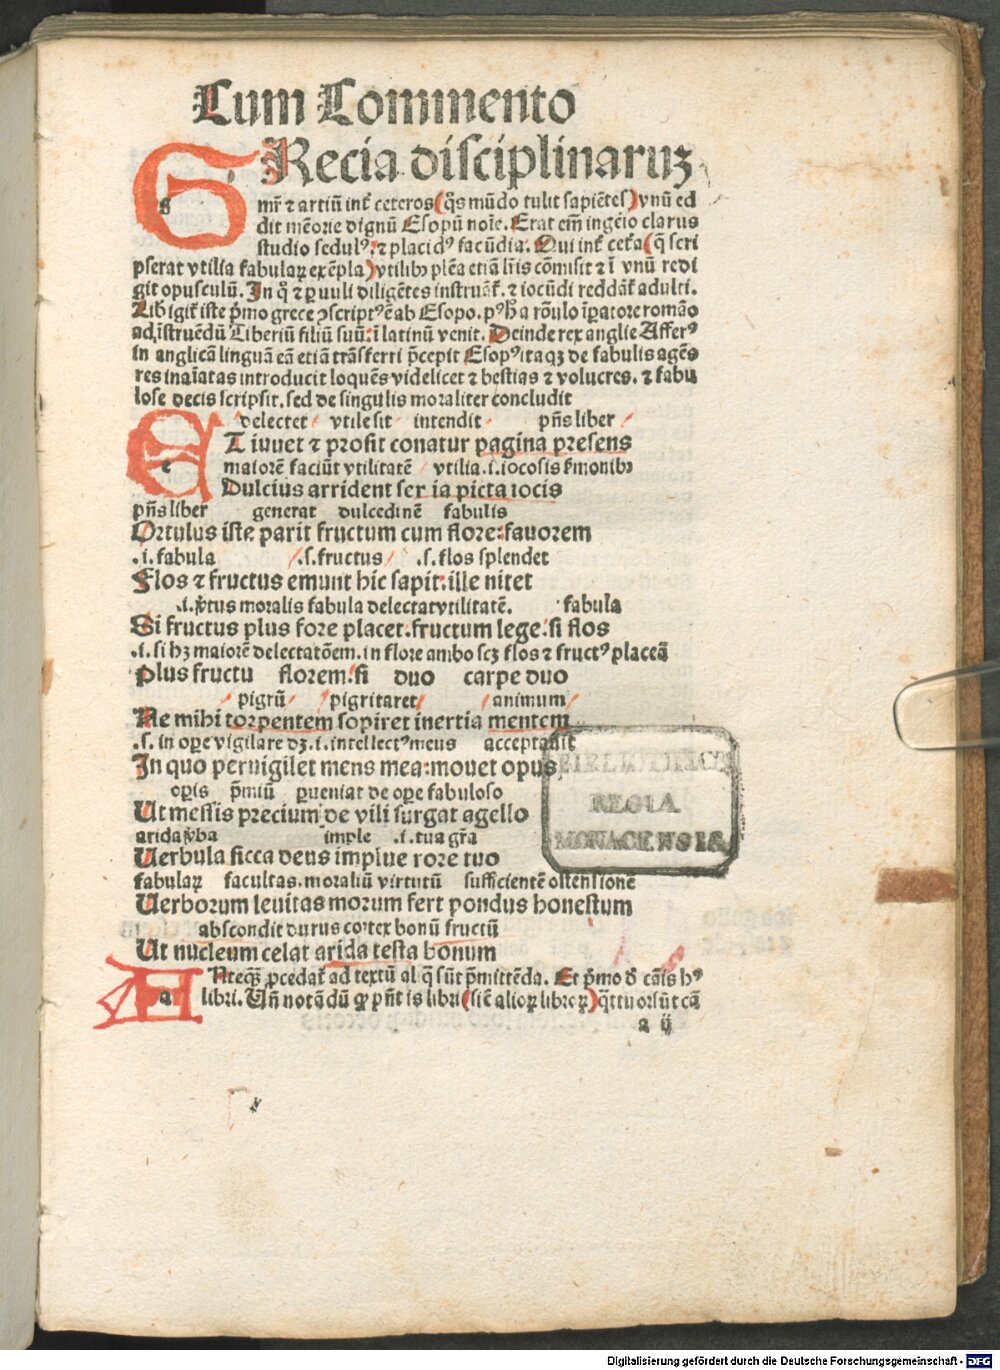 Cum Commento
GRecia disciplinaruꝫ
mr̄ ⁊ artiū int̄ ceteros (q̄s mūdo tulit sapiētes) vnū ed
dit mēorie dignū Esopū noīe. Erat em̄ ingēio clarus
studio sedulꝰ: ⁊ placidꝰ facūdia. Qui int̄ cet̄a (q̄ scri
pserat vtilia fabulaꝝ exēpla) vtilibꝫ plēa etiā lr̄is cōmisit ⁊ ī vnū redi
git opusculū. In q̊ ⁊ ꝑuuli diligētes instruāt̄. ⁊ iocūdi reddāt̄ adulti.
Lib̄ igit̄ iste pͥmo grece ɔscriptꝰ ē ab Esopo. pꝰ h̄a rōulo īꝑatore romāo
ad īstruēdū Tiberiū filiū suū: ī latinū venit. Deinde rex anglie Afferꝰ
in anglicā linguā eā etiā trāsferri p̄cepit Esopꝰ itaqꝫ de fabulis agēs
res inaīatas introducit loquēs videlicet ⁊ bestias ⁊ volucres. ⁊ fabu
lose decis scripsit. sed de singulis moraliter concludit
delectet vtile sit intendit p̄ns liber
ET iuuet ⁊ prosit conatur pagina presens
maiorē faciūt vtilitatē vtilia .i. iocosis s̄monibꝫ
Dulcius arrident seria picta iocis
p̄ns liber generat dulcedinē fabulis
Ortulus iste parit fructum cum flore: fauorem
.i. fabula .s. fructus .s. flos splendet
Flos ⁊ fructus emunt hic sapit: ille nitet
.i. v̓tus moralis fabula delectat vtilitatē. fabula
Si fructus plus fore placet. fructum lege: si flos
.i. si hꝫ maiorē delectatōem. in flore ambo scꝫ flos ⁊ fructꝰ placeā
Plus fructu florem: si duo carpe duo
pigrū pigritaret animum
Ne mihi torpentem sopiret inertia mentem
.s. in oꝑe vigilare dꝫ .i. intellectꝰ meus acceptauit
In quo peruigilet mens mea: mouet opus
oꝑis p̄miū ꝓueniat de oꝑe fabuloso
Ut messis precium de vili surgat agello
arida v̓ba imple .i. tua gr̄a
Uerbula sicca deus implue rore tuo
fabulaꝝ facultas. moraliū virtutū sufficientē ostensionē
Uerborum leuitas morum fert pondus honestum
abscondit durus cortex bonū fructū
Ut nucleum celat arida testa bonum
ANteqꝫ ꝓcedat̄ ad textū alꝗ̄ sūt p̄mittēda. Et pͥmo ꝺ̄ cāis hꝰ
libri. Un̄ notādū ꝙ p̄ntis libri (sic̄ alioꝝ libroꝝ) q̄ttuor sūt cā
a ij
BIBLIOTHECA
REGIA
MONACENSIS.
Digitalisierung gefördert durch die Deutsche Forschungsgemeinschaft - DFG